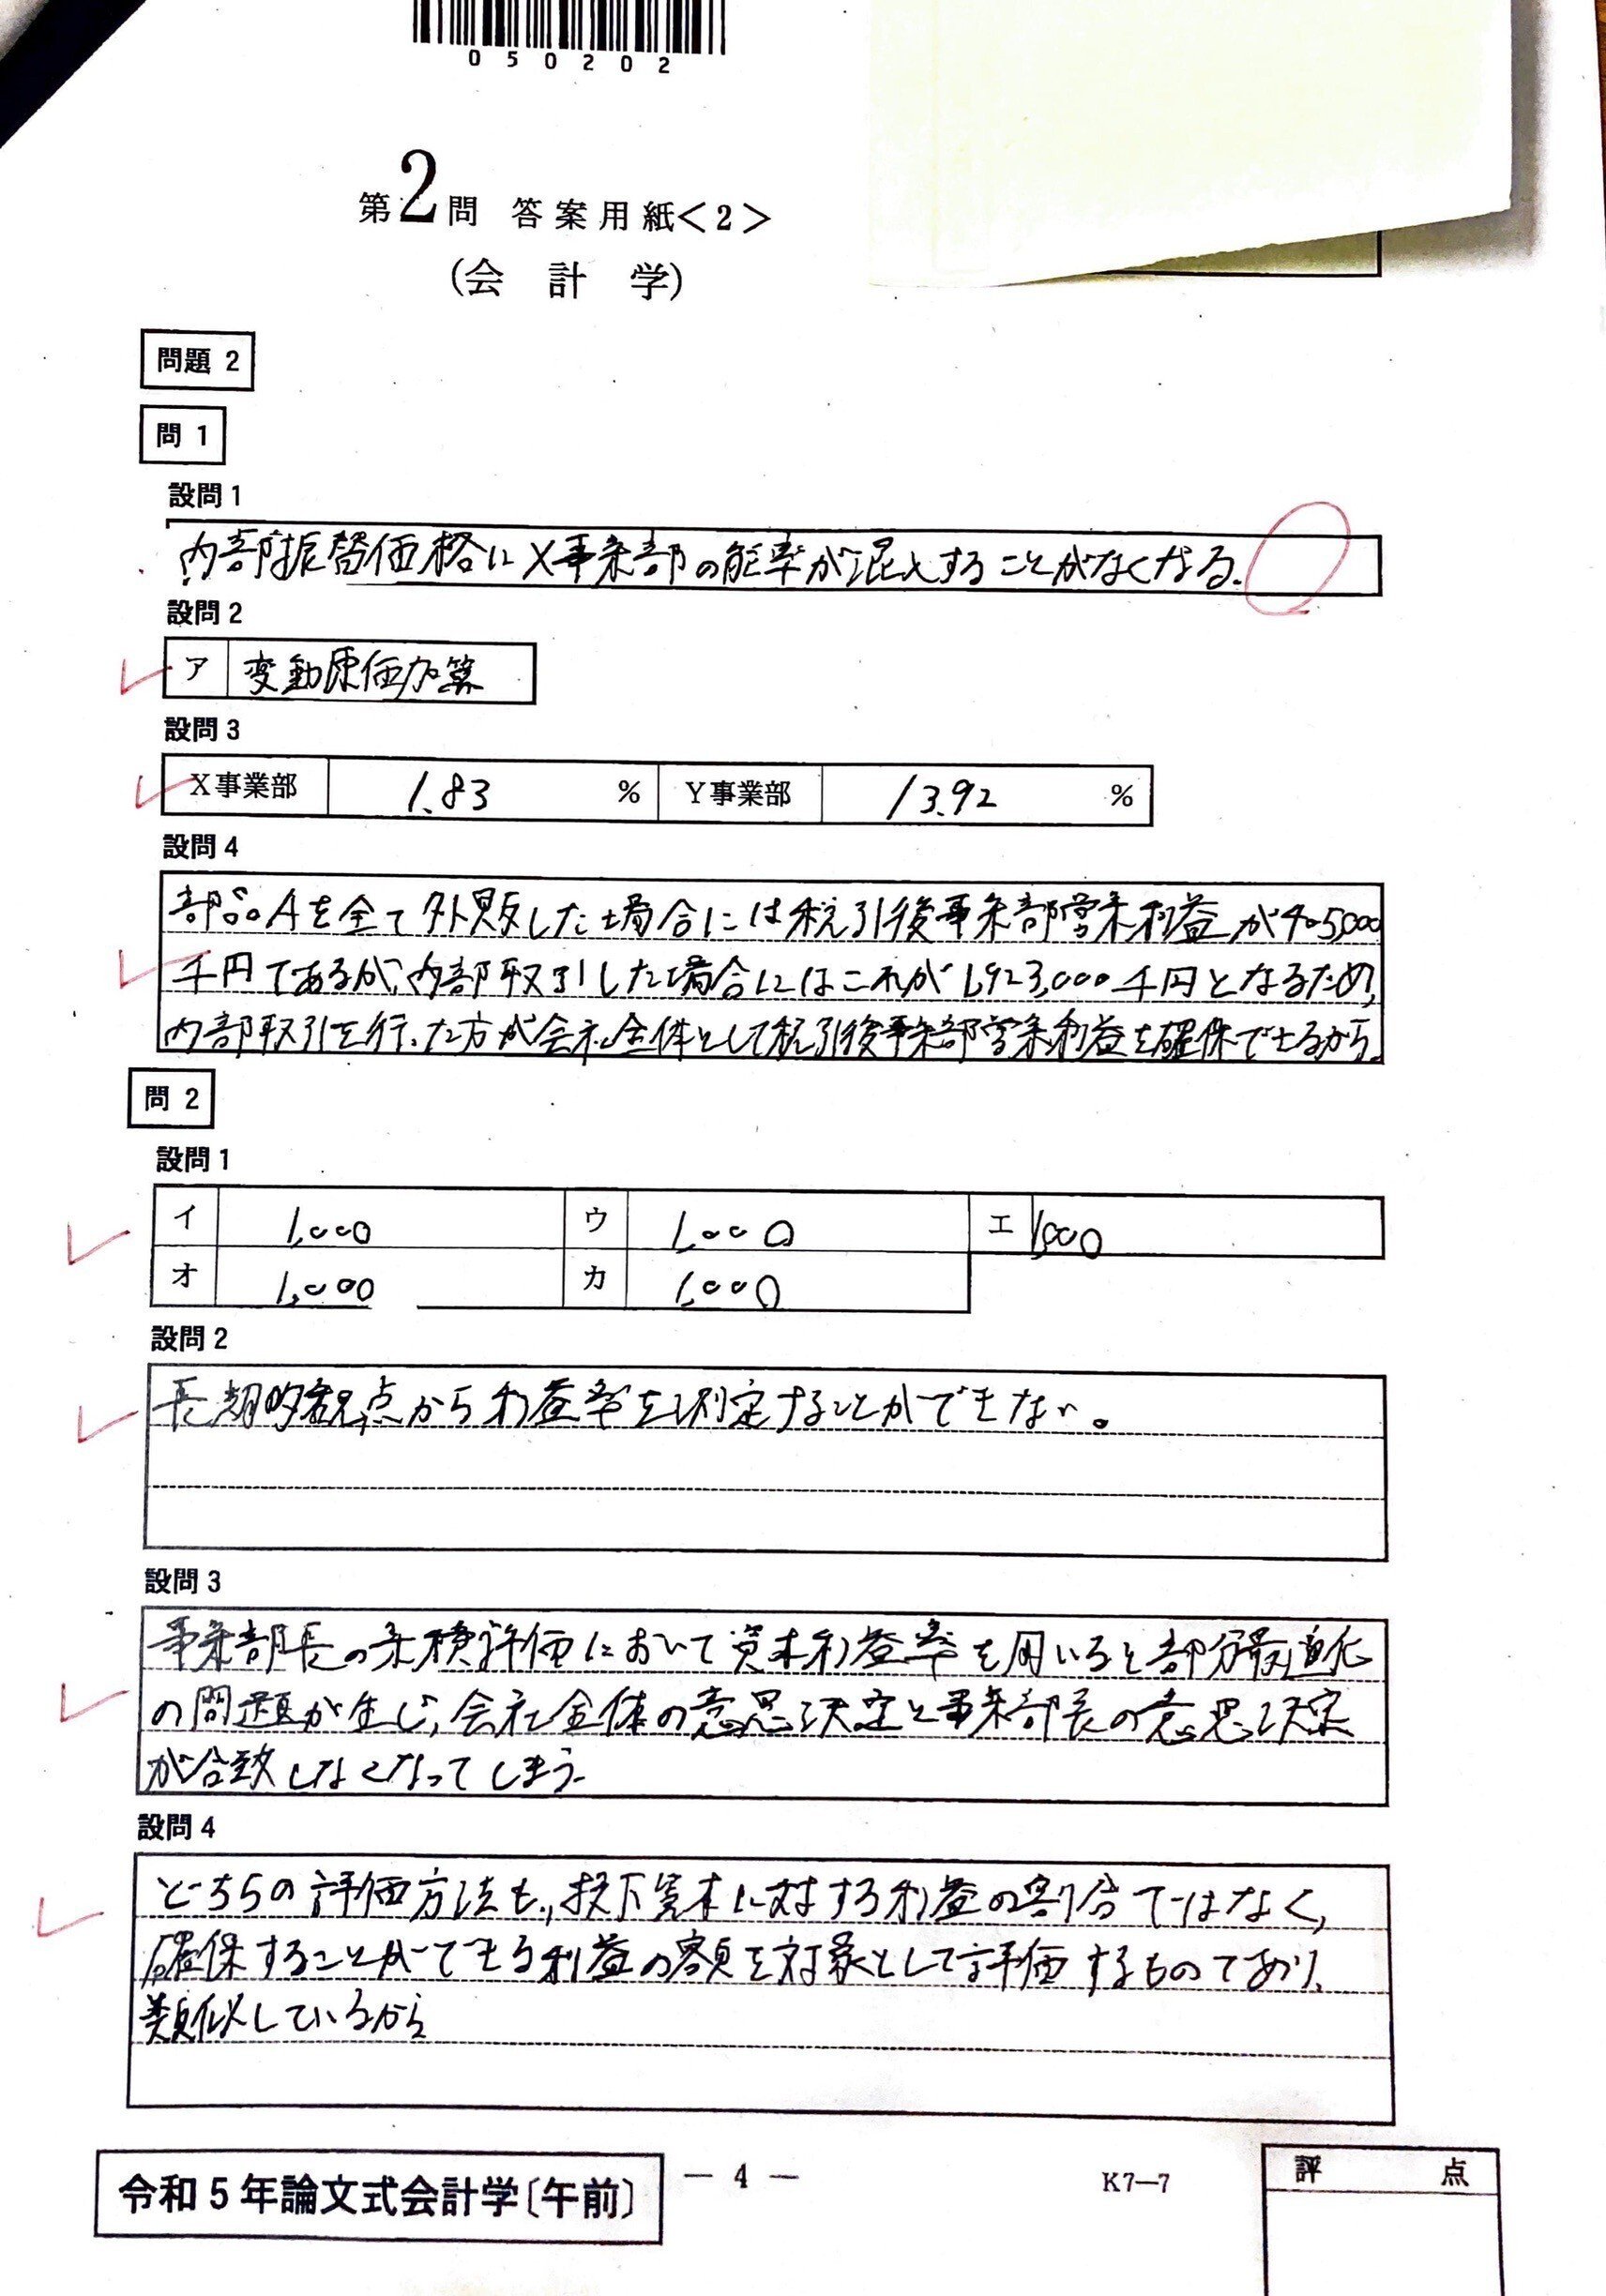 050202
第2問 答案用紙<2>
(会計学)
問題 2
問 1
設問1
内部振替価格にX事業部の能率が混入することがなくなる。
設問2
ア 変動原価加算
設問3
X事業部 1.83 % Y事業部 13.92 %
設問4
部品Aを全て外販した場合には税引後事業部営業利益が405,000
千円であるが、内部取引した場合にはこれが1,923,000千円となるため、
内部取引を行った方が会社全体として税引後事業部営業利益を確保できるから。
問 2
設問1
イ 1,000 ウ 1,000 エ 1,000
オ 1,000 カ 1,000
設問2
長期的観点から利益率を測定することができない。
設問3
事業部長の業績評価において資本利益率を用いると部分最適化
の問題が生じ、会社全体の意思決定と事業部長の意思決定
が合致しなくなってしまう。
設問4
どちらの評価方法も、投下資本に対する利益の割合ではなく、
確保することができる利益の額を対象として評価するものであり、
類似しているから
令和5年論文式会計学〔午前〕
— 4 —
K7—7
評点